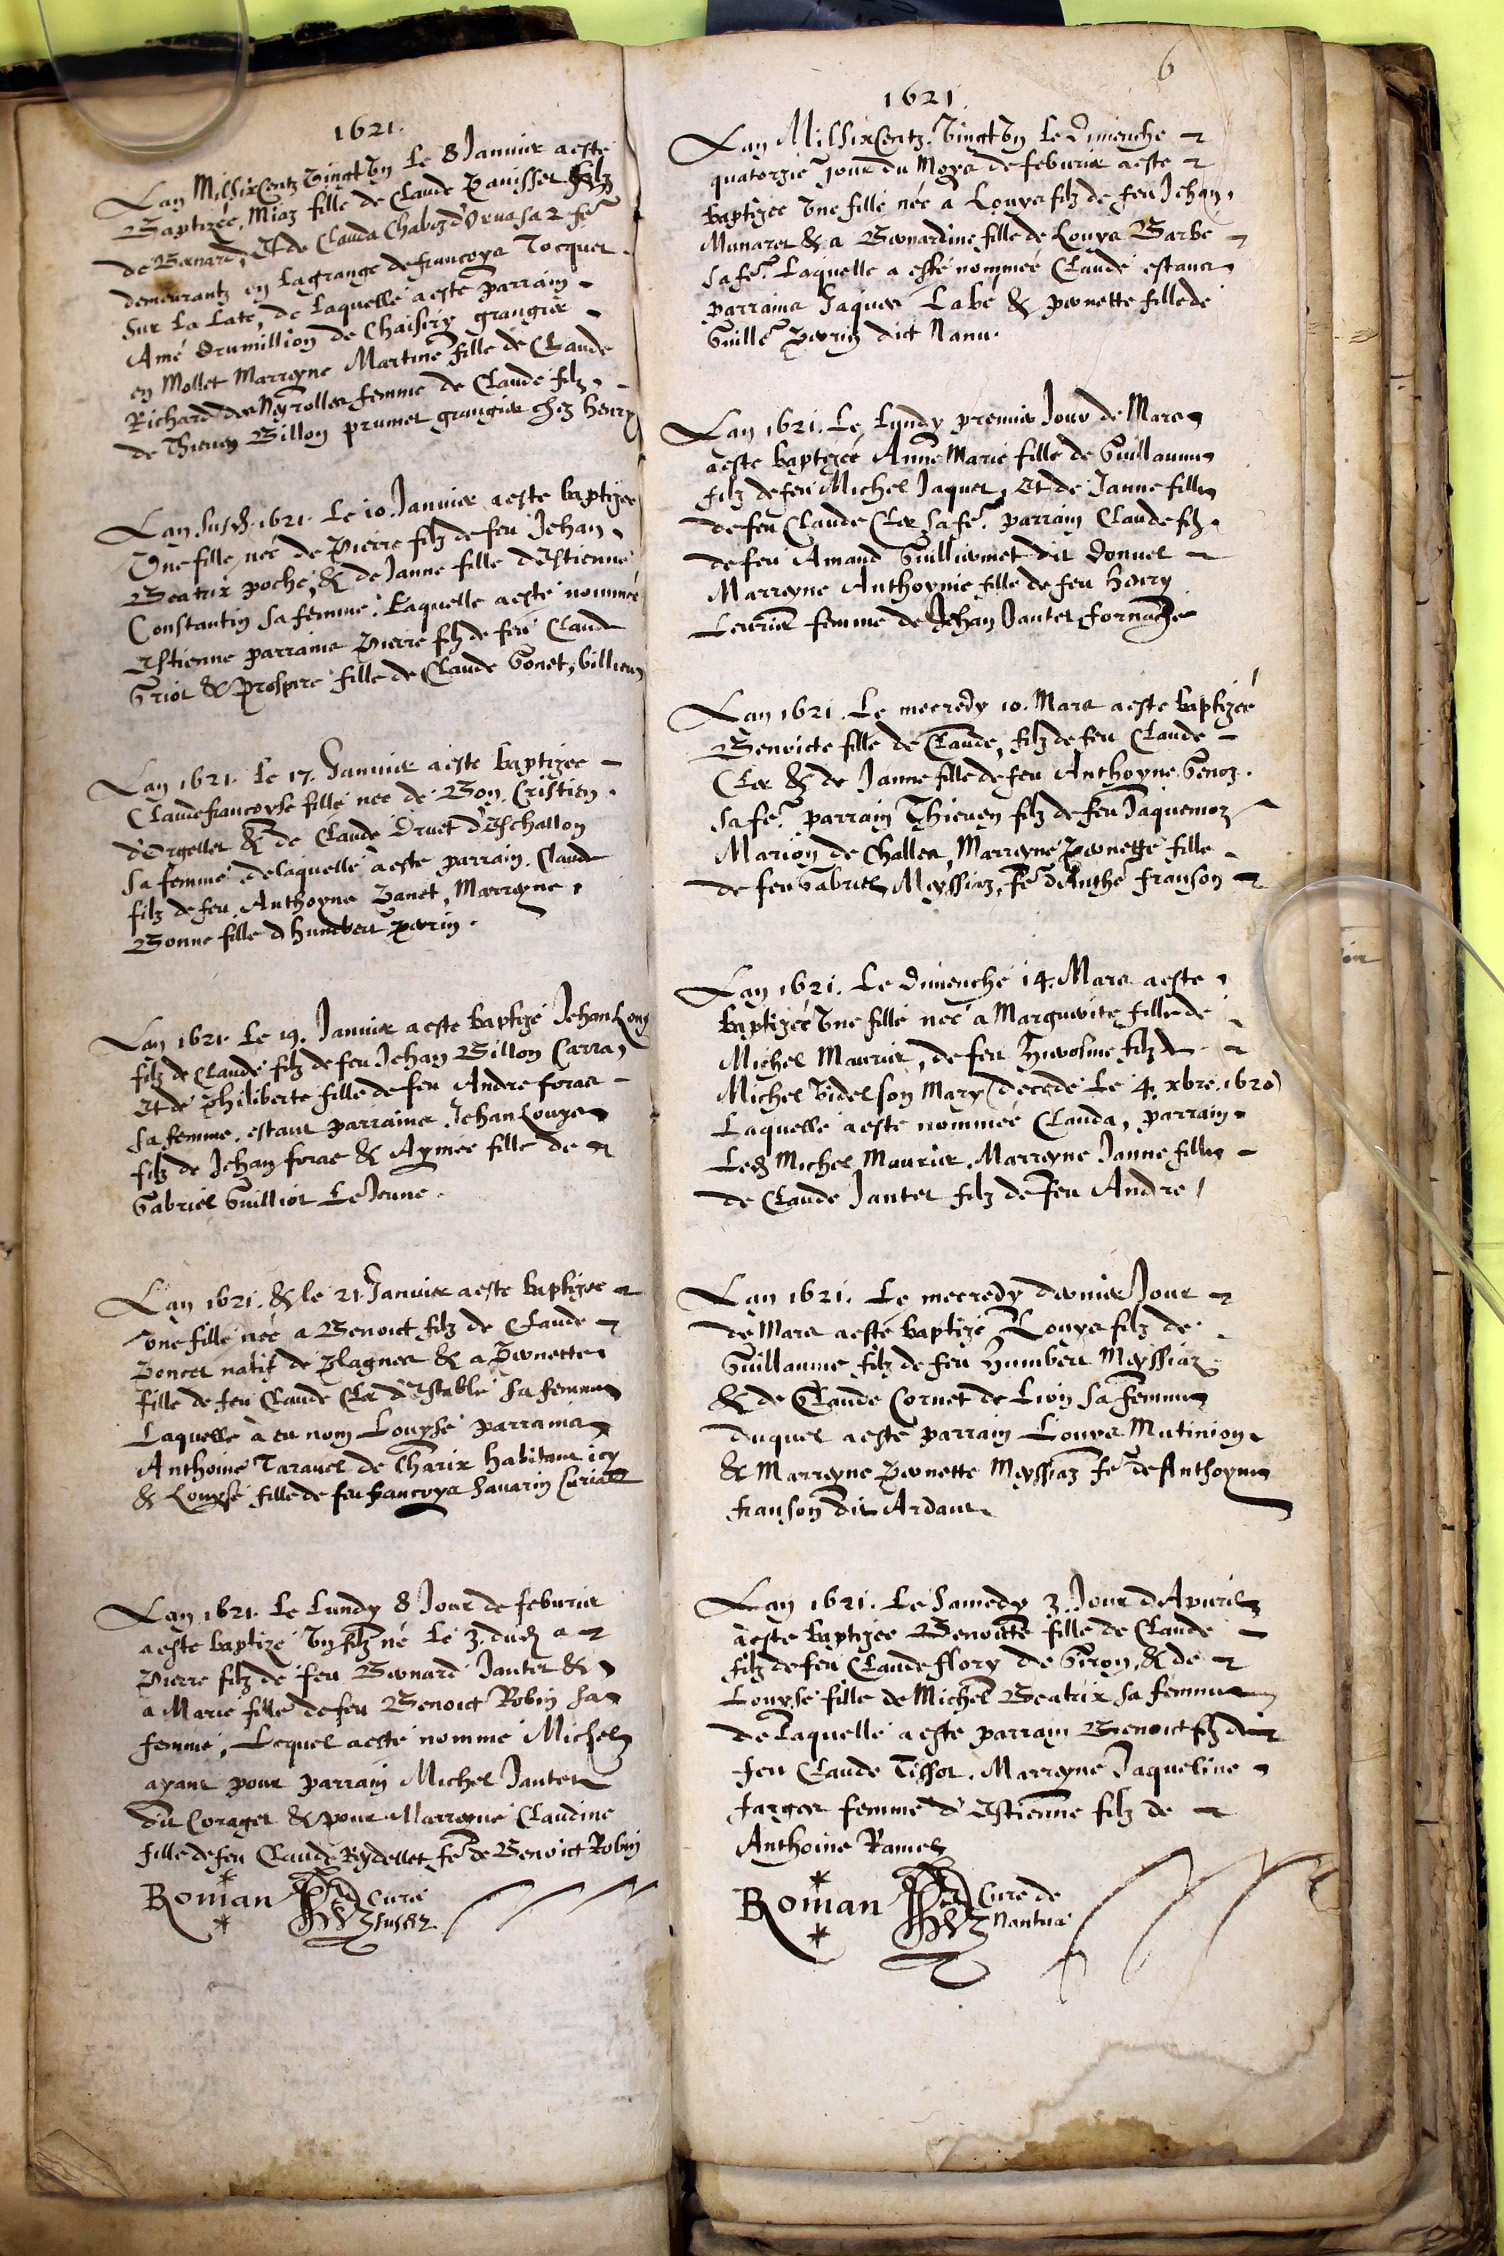 1621.
Lan Mil Six Centz Vingt Vn le 8 Januier a este
Baptizée, Miaz fille de Claude Panisset filz
de Bernard, Et de Clauda Chabez d'Oruasa 2 fe.
demeurantz en Lagrange de francoys Tocquet
sur La Late, de Laquelle a esté parrain
Amé Drumillion de Chaisiry grangier
en Mollet Marreyne Martine fille de Claude
Richard des Neyrolles femme de Claude filz
de Thieuen Billon prumet grangier chez henry
Lan susd. 1621. Le 10. Januier a este baptizee
Vne fille neé de Pierre filz de feu Jehan
Beatrix poché, & de Janne fille d'Estienne
Constantin sa femme. Laquelle a esté nommeé
Estienne parrains Pierre filz de feu Claude
Griot & Prospere fille de Claude Gonet, villieu
Lan 1621. Le 17. Januier a este baptizee
Claude francoyse fille neé de Bon. Cristien
d'Orgellet & de Claude Druet d'Eschallon
sa femme de laquelle a este parrain. Claude
filz de feu Anthoyne Banet, Marreyne
Bonne fille d humbert perrin.
Lan 1621. Le 19. Januier a este baptizé Jehan Lony
filz de Claude filz de feu Jehan Billon Carra
Et de Philiberte fille de feu Andre foras
sa femme. estant parrains. Jehan Louys
filz de Jehan foras & Aymeé fille de
Gabriel Guilliot Le Jeune.
Lan 1621. & le 21 Januier a este baptizee
Vne fille neé a Benoict filz de Claude
Poncet natif de Plagnes & a Pernette
fille de feu Claude Clet d'Estable sa femme
Laquelle à eu nom Louyse parrains
Anthoine Tarauel de Charix habitant icy
& Louyse fille de feu francoys Sauarin Curial
Lan 1621. Le Lundy 8 Jour de feburier
a este baptizé Vn filz né Le 3. dud. a
Pierre filz de feu Bernard Jantet &
a Marie fille de feu Benoict Robin sa
femme, Lequel a esté nommé Michel
ayant pour parrain Michel Jantet
dit Coraget & pour Marreyne Claudine
fille de feu Claude Reydellet fe. de Benoict Robin
Roman Curé
susd.
6
1621.
Lan Mil Six Centz. Vingt Vn Le Dimenche
quatorzie Jour du Moys de feburier a este
baptizee Vne fille neé a Louys filz de feu Jehan
Munaret & a Bernardine fille de Louys Barbe
sa fe. Laquelle a esté nommeé Claude estant
parrains Jaques Labé & pernette fille de
Guille Perrin dict Nanu.
Lan 1621. Le Lundy premier Jour de Mars
a este baptizeé Anne Marie fille de Guillaume
filz de feu Michel Jaquet, Et de Janne fille
de feu Claude Clet sa fe. parrain Claude filz
de feu Amand Guilliermet dit Donuel
Marreyne Anthoynie fille de feu henry
Leurier femme de Jehan Jantet fornagé
Lan 1621. Le mecredy 10. Mars a este baptizeé
Benoicte fille de Claude, filz de feu Claude
Clet & de Janne fille de feu Anthoyne Genoz.
sa fe. parrain Thieuen filz de feu Jaquemoz
Marion de Challes, Marreyne Pernette fille
de feu Gabriel Meyssiaz, fe. d'Anthe franson
Lan 1621. Le Dimenche 14. Mars a este
baptizeé Vne fille neé a Marguerite fille de
Michel Maurier, de feu Hierosme filz de
Michel Videl son Mary (decede Le 4. xbre. 1620)
Laquelle a este nommeé Clauda, parrain
Led. Michel Maurier. Marreyne Janne fille
de Claude Jantet filz de feu Andre
Lan 1621. Le mecredy dernier Jour
de Mars a esté baptizé Louys filz de
Guillaume filz de feu humbert Meyssiaz
& de Claude Cornet de Lion sa femme
duquel a esté parrain Louys Mutinion
& Marreyne Pernette Meyssiaz fe. de Anthoyne
franson dit Ardant
Lan 1621. Le Samedy 3. Jour d'Apuril
a este baptizee Benoicte fille de Claude
filz de feu Claude flory de Giron, & de
Louyse fille de Michel Beatrix sa femme
de Laquelle a este parrain Benoict filz de
feu Claude Tissot. Marreyne Jaqueline
farges femme d'Estienne filz de
Anthoine Ramel
Roman Curé de
Nantua